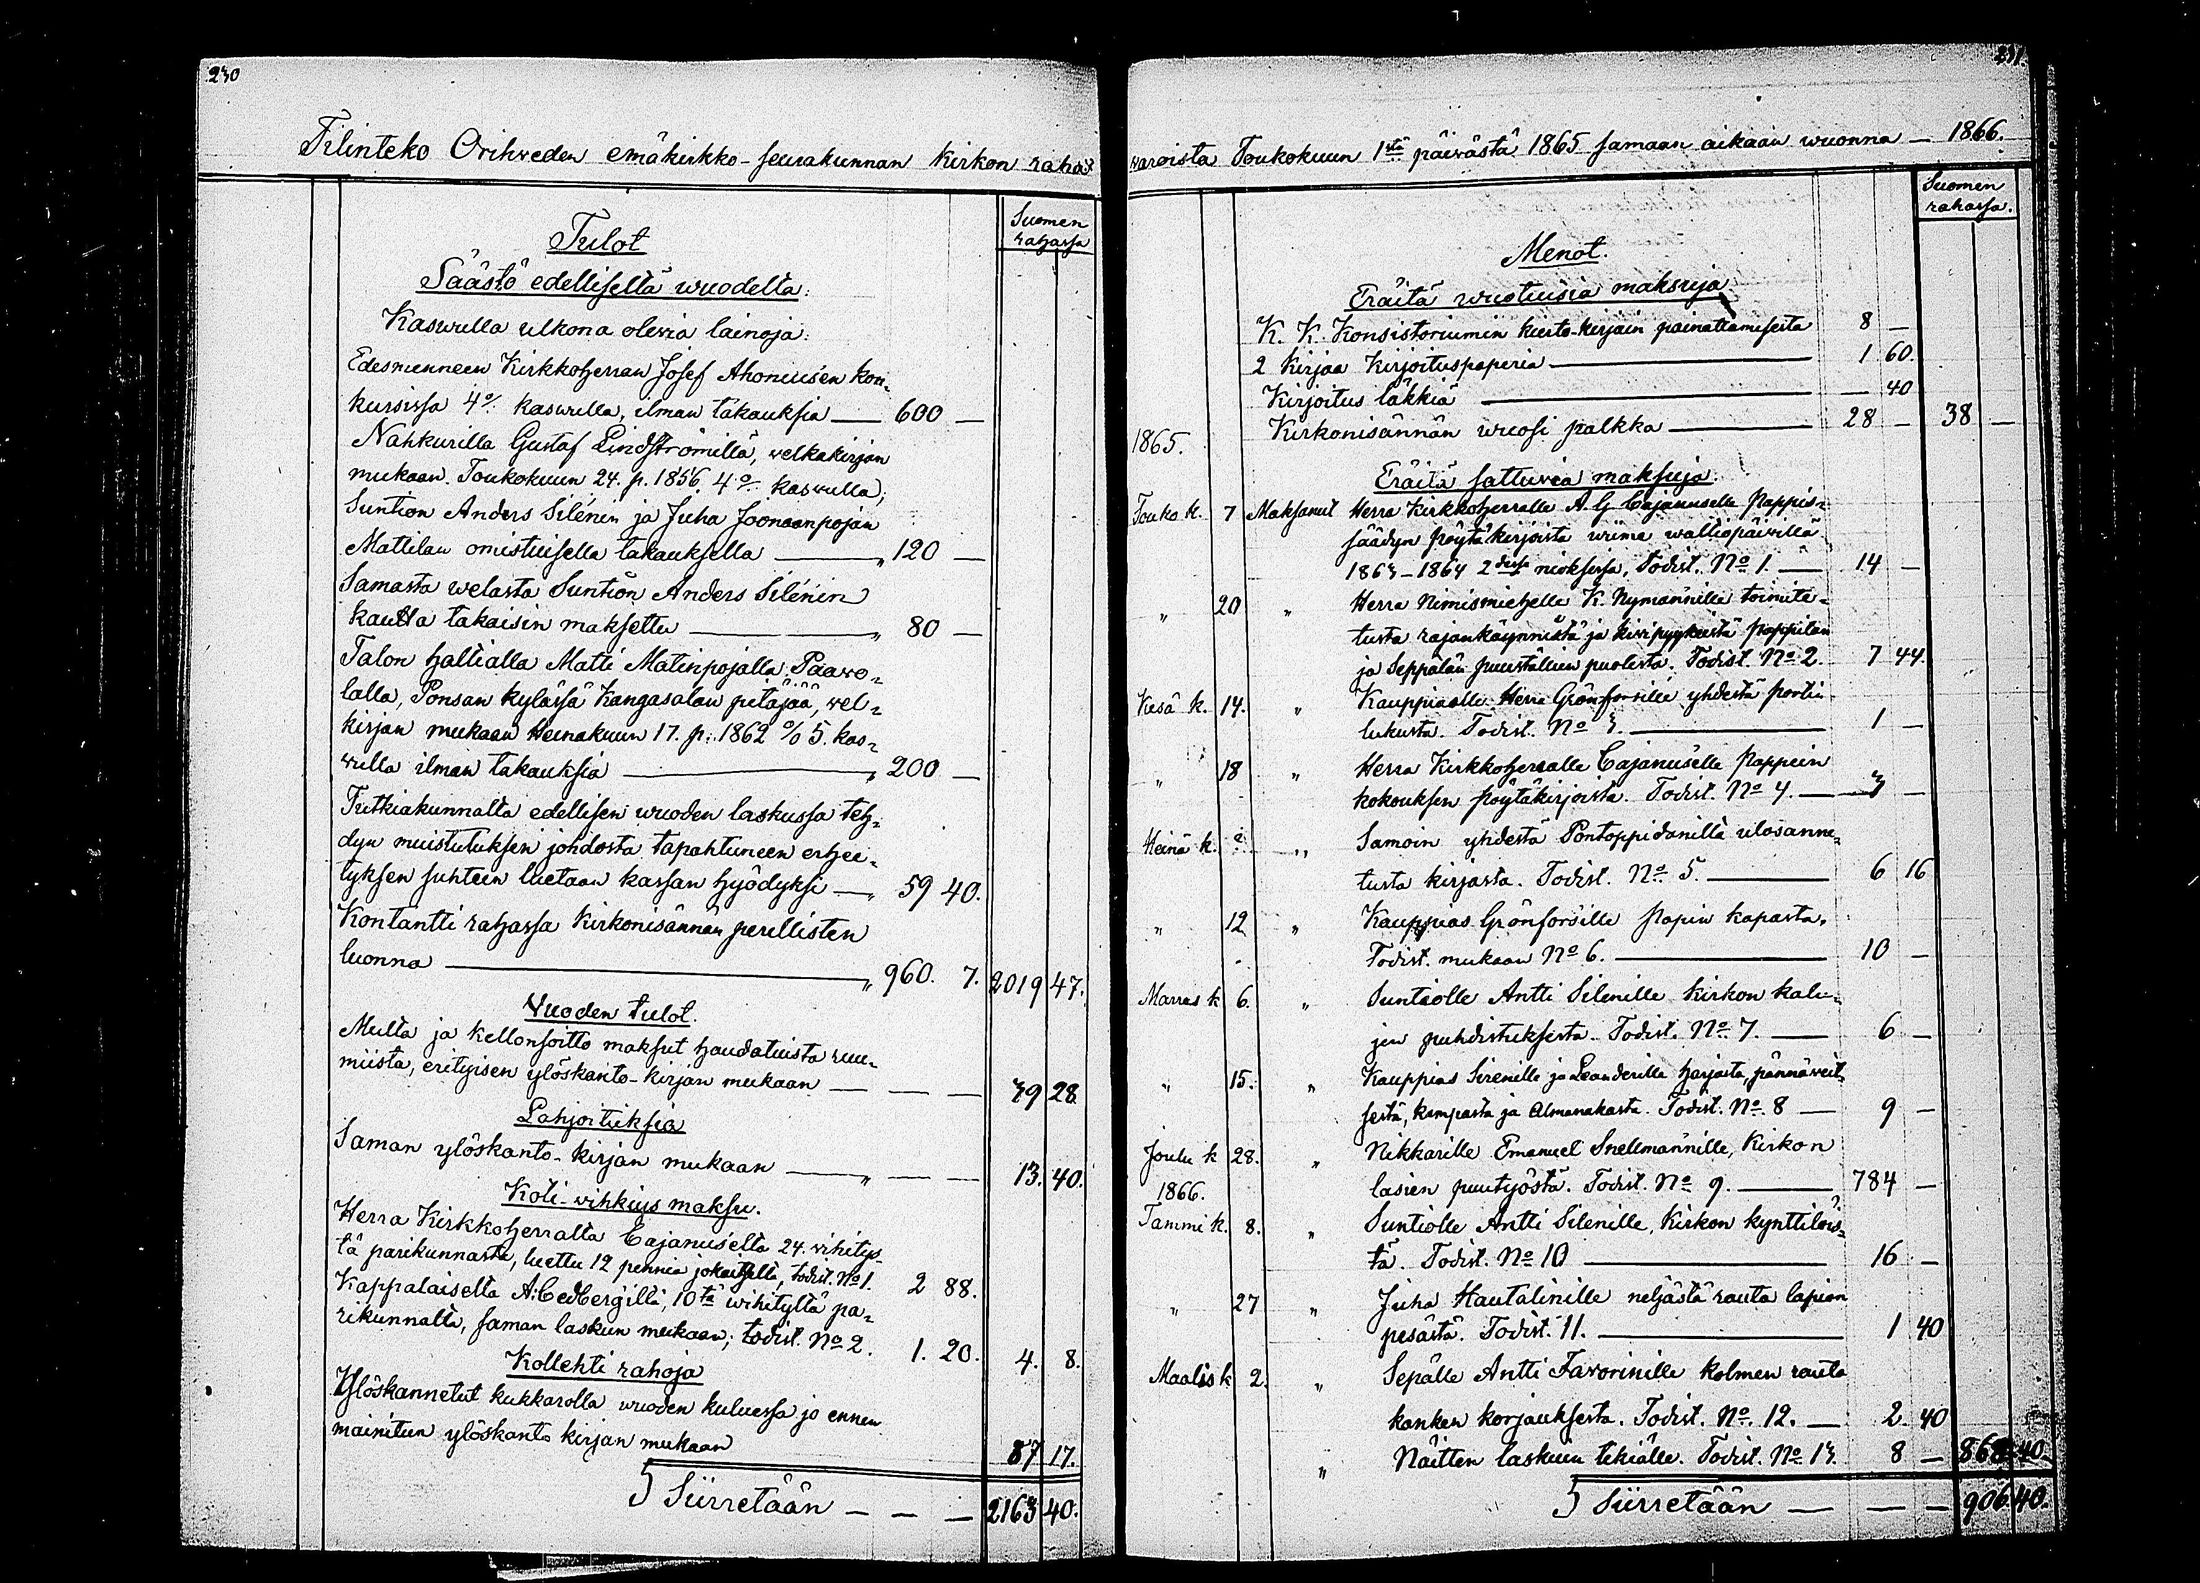 230
Tilinteko Orihveden emäkirkko-seurakunnan Kirkon raha-
Suomen
rahassa
Tulot
Säästö edelliseltä wuodelta:
Kaswulla ulkona olevia lainoja:
Edesmenneen Kirkkoherran Josef Ahoniusen kon-
kursissa 4% kaswulla, ilman takauksia — 600 —
Nahkurilla Gustaf Lindströmillä, welkakirjan
mukaan Toukokuun 24. p. 1856 4% kaswulla,
Suntion Anders Silénin ja Juha Joonaanpojan
Mattilan omistuisella takauksella — „ 120 —
Samasta welasta Suntion Anders Silénin
kautta takaisin maksettu — „ 80 —
Talon haltialla Matti Matinpojalla Paawo-
lalla, Ponsan kylässä Kangasalan pitäjää, wel-
kirjan mukaan Heinäkuun 17. p. 1862 % 5. kas-
wulla ilman takauksia — „ 200 —
Tutkiakunnalta edellisen wuoden laskussa teh-
dyn muistutuksen johdosta tapahtuneen erhee-
tyksen suhteen luetaan kassan hyödyksi — „ 59 40.
Kontantti rahassa Kirkonisännän perillisten
luonna — „ 960. 7. 2019 47.
Wuoden tulot.
Multa ja kellonsoitto maksut haudatuista ruu-
miista, erityisen ylöskanto-kirjan mukaan — — — 39 28
Lahjoituksia
Saman ylöskanto-kirjan mukaan — „ — — 13. 40.
Koti-wihkiys maksu.
Herra Kirkkoherralta Cajanuselta 24. wihitys-
tä parikunnasta, luettu 12 penniä jokaiselta, todist. No 1. 2 88.
Kappalaiselta A. Cedbergiltä, 10tä wihityltä pa-
rikunnalta, saman laskun mukaan; todist. No 2. 1. 20. 4. 8.
Kollehti rahoja
Ylöskannetut kukkarolla wuoden kuluessa jo ennen
mainitun ylöskanto kirjan mukaan 87 17.
Siirretään — — — 2163 40.
231.
waroista Toukokuun 1stä päivästä 1865 samaan aikaan wuonna — 1866.
Suomen
rahassa.
Menot.
Eräitä wuotuisia maksuja
K. K. Konsistoriumin kierto-kirjain painattamisesta 8 —
2 Kirjaa Kirjoituspaperia — 1 60.
Kirjoitus läkkiä — — 40
Kirkonisännän wuosi palkka — 28 — 38 —
1865.
Eräitä sattuvia maksuja.
Touko k. 7 Maksanut Herra Kirkkoherralle A. G. Cajanuselle Pappis-
säädyn pöytäkirjoista wiime waltiopäivillä
1863–1864 2dessa nioksessa, Todist. No 1. — 14 —
„ 20 „ Herra Nimismiehelle K. Nymannille toimite-
tusta rajankäynnistä ja kivipyykeistä Pappilan
ja Seppälän puustellien puolesta. Todist. No 2. 7 44.
Kesä k. 14. „ Kauppiaalle Herra Grönforsille yhdestä portin
lukusta. Todist. No 3. — 1 —
„ 18 „ Herra Kirkkoherralle Cajanuselle Pappein
kokouksen pöytäkirjoista. Todist. No 4. — 3 —
Heinä k. „ Samoin yhdestä Pontoppidanilta ulosanne-
tusta kirjasta. Todist. No 5. — 6 16
„ 12 „ Kauppias Grönforsille Papin kapasta.
Todist. mukaan No 6. — 10 —
Marras k 6. „ Suntiolle Antti Silenille Kirkon kalu-
jen puhdistuksesta. Todist. No 7. — 6 —
„ 15. „ Kauppias Sirenille ja Leanderille harjasta, pännäweit-
sestä, kampasta ja Almanakasta. Todist. No 8 — 9 —
Joulu k 28. „ Nikkarille Emanuel Snellmannille, Kirkon
lasien puutyöstä. Todist. No 9. — 784 —
1866.
Tammi k. 8. „ Suntiolle Antti Silenille, Kirkon kynttilöis-
tä. Todist. No 10 — 16 —
„ 27 „ Juha Hautalinille neljästä rauta lapion
pesästä. Todist. 11. — 1 40
Maalis k 2. „ Sepälle Antti Favorinille kolmen rauta
kanken korjauksesta. Todist. No. 12. — 2. 40
„ Näitten laskuin tekiälle. Todist. No 13. 8 — 868 40.
Siirretään — — — 906 40.